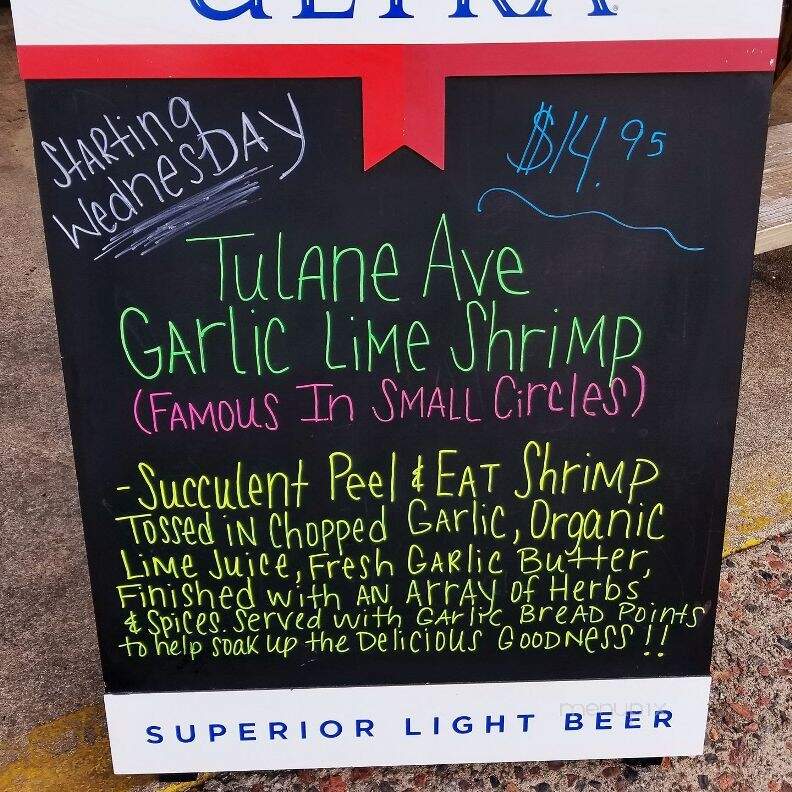 ULTRA
STARting
WednesDAY
$14.95
TulAne Ave
GArlic LiMe ShriMp
(FAMOUS In SMALL Circles)
-Succulent Peel & EAT ShriMP
Tossed iN Chopped GArlic, Organic
LiMe Juice, Fresh GARlic Butter,
Finished with AN ArrAy of Herbs
& Spices. Served with GArlic BreAD Points
to help soak up the Delicious GOODNess!!
menupix
SUPERIOR LIGHT BEER